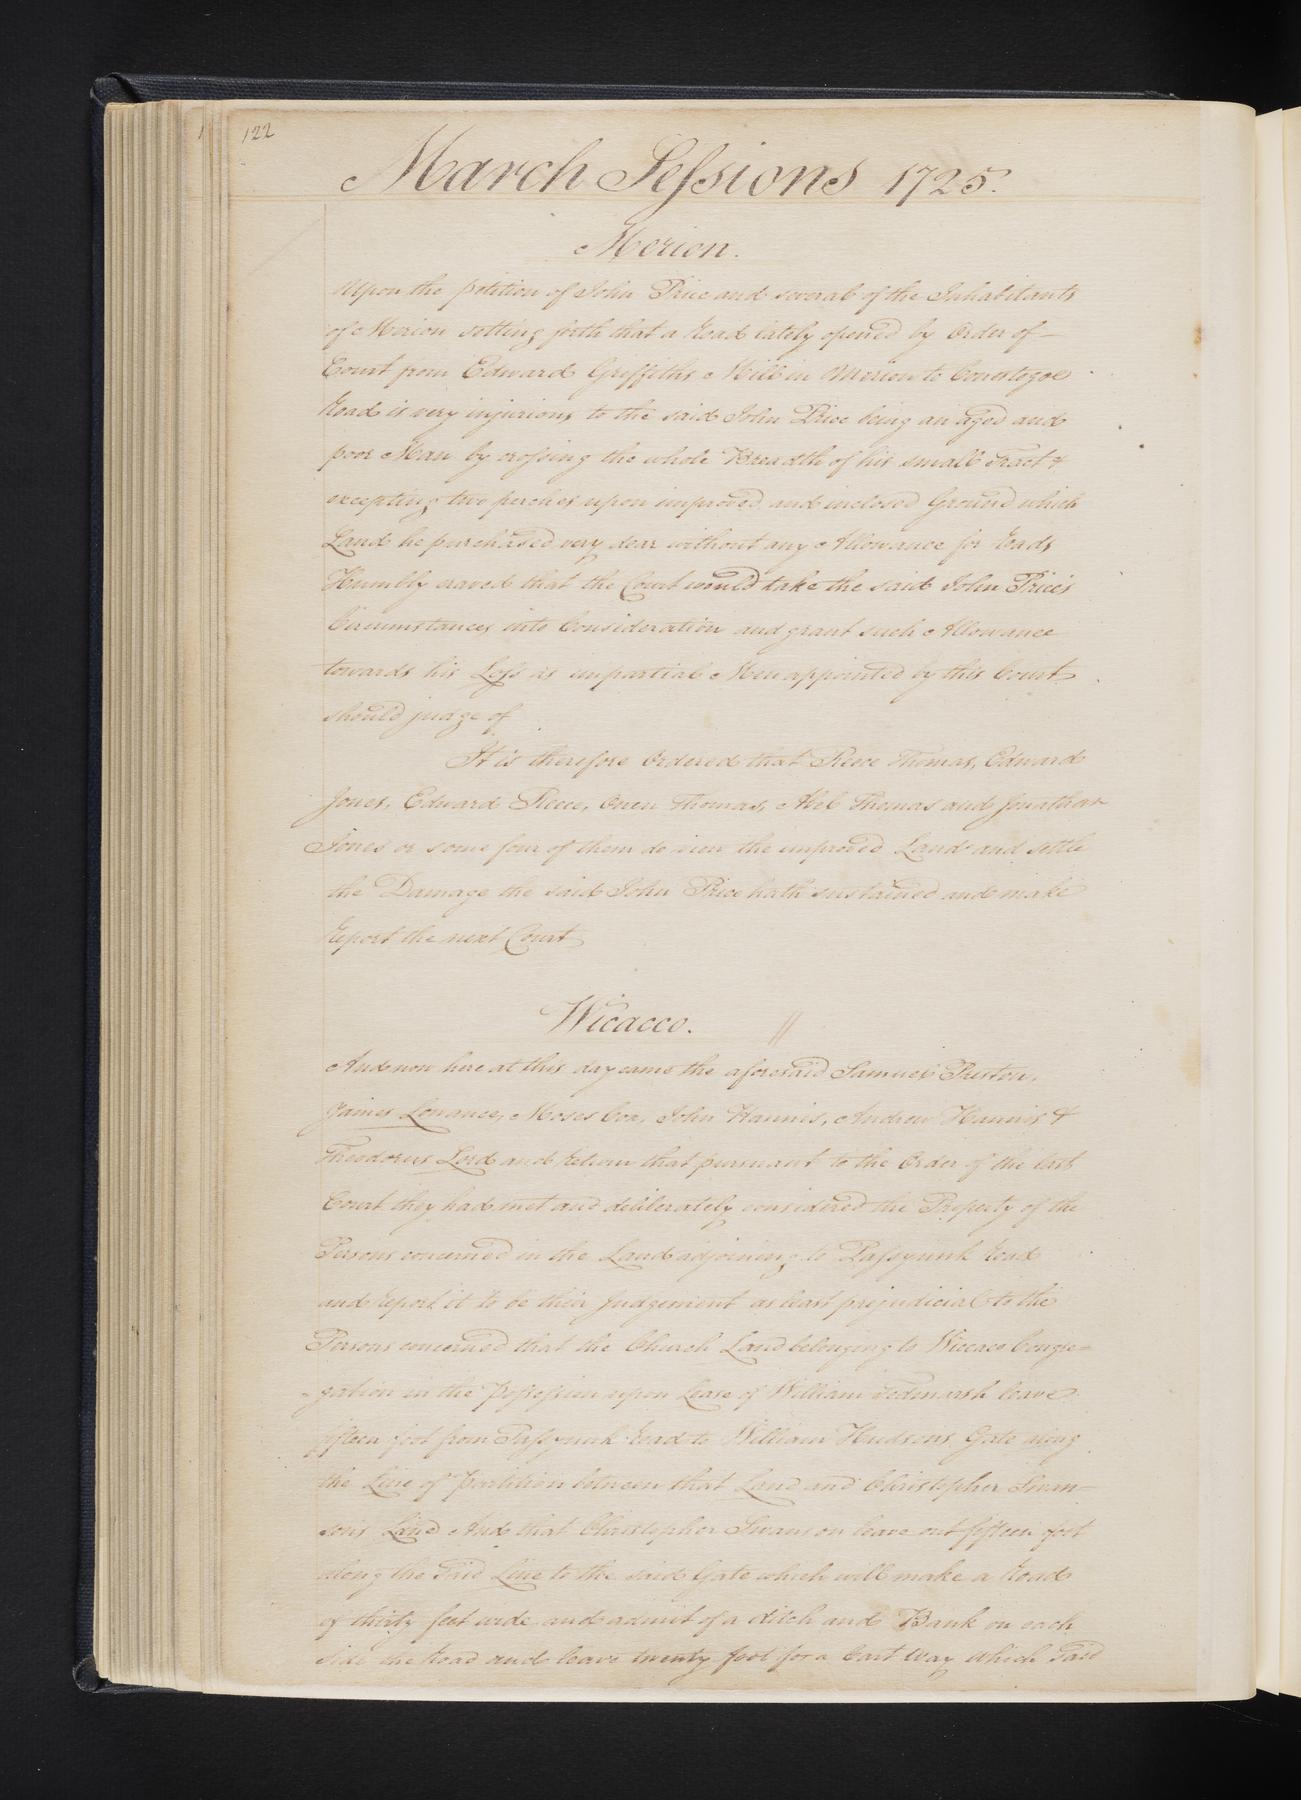 122
March Sessions 1725.
Merion.
Upon the petition of John Price and several of the Inhabitants
of Merion setting forth that a Road lately opened by Order of
Court from Edward Griffiths Mill in Merion to Conestogoe
Road is very injurious to the said John Price being an aged and
poor Man by crossing the whole Breadth of his small Tract &
excepting two perches upon improved and inclosed Ground which
Land he purchased very dear without any Allowance for Roads
Humbly craved that the Court would take the said John Price's
Circumstances into Consideration and grant such Allowance
towards his Loss as impartial Men appointed by this Court
should judge of
It is therefore Ordered that Reece Thomas, Edward
Jones, Edward Reece, Owen Thomas, Abel Thomas and Jonathan
Jones or some four of them do view the improved Land and settle
the Damage the said John Price hath sustained and make
Report the next Court
Wicacco. //
And now here at this day came the aforesaid Samuel Preston,
James Lonance, Moses Cox, John Hannis, Andrew Hannis &
Theodorus Lord and Return that pursuant to the Order of the last
Court they had met and deliberately considered the Property of the
Persons concerned in the Land adjoining to Passyunk Road
and Report it to be their Judgement as least prejudicial to the
Persons concerned that the Church Land belonging to Wiccaco Congre=
=gation in the possession upon Lease of William Tedmarsh leave
fifteen foot from Passyunk Road to William Hudsons Gate along
the Line of partition between that Land and Christopher Swan=
sons Land And that Christopher Swanson leave out fifteen foot
along the said Line to the said Gate which will make a Road
of thirty feet wide and admit of a ditch and Bank on each
side the Road and leave twenty foot for a Cart Way which said